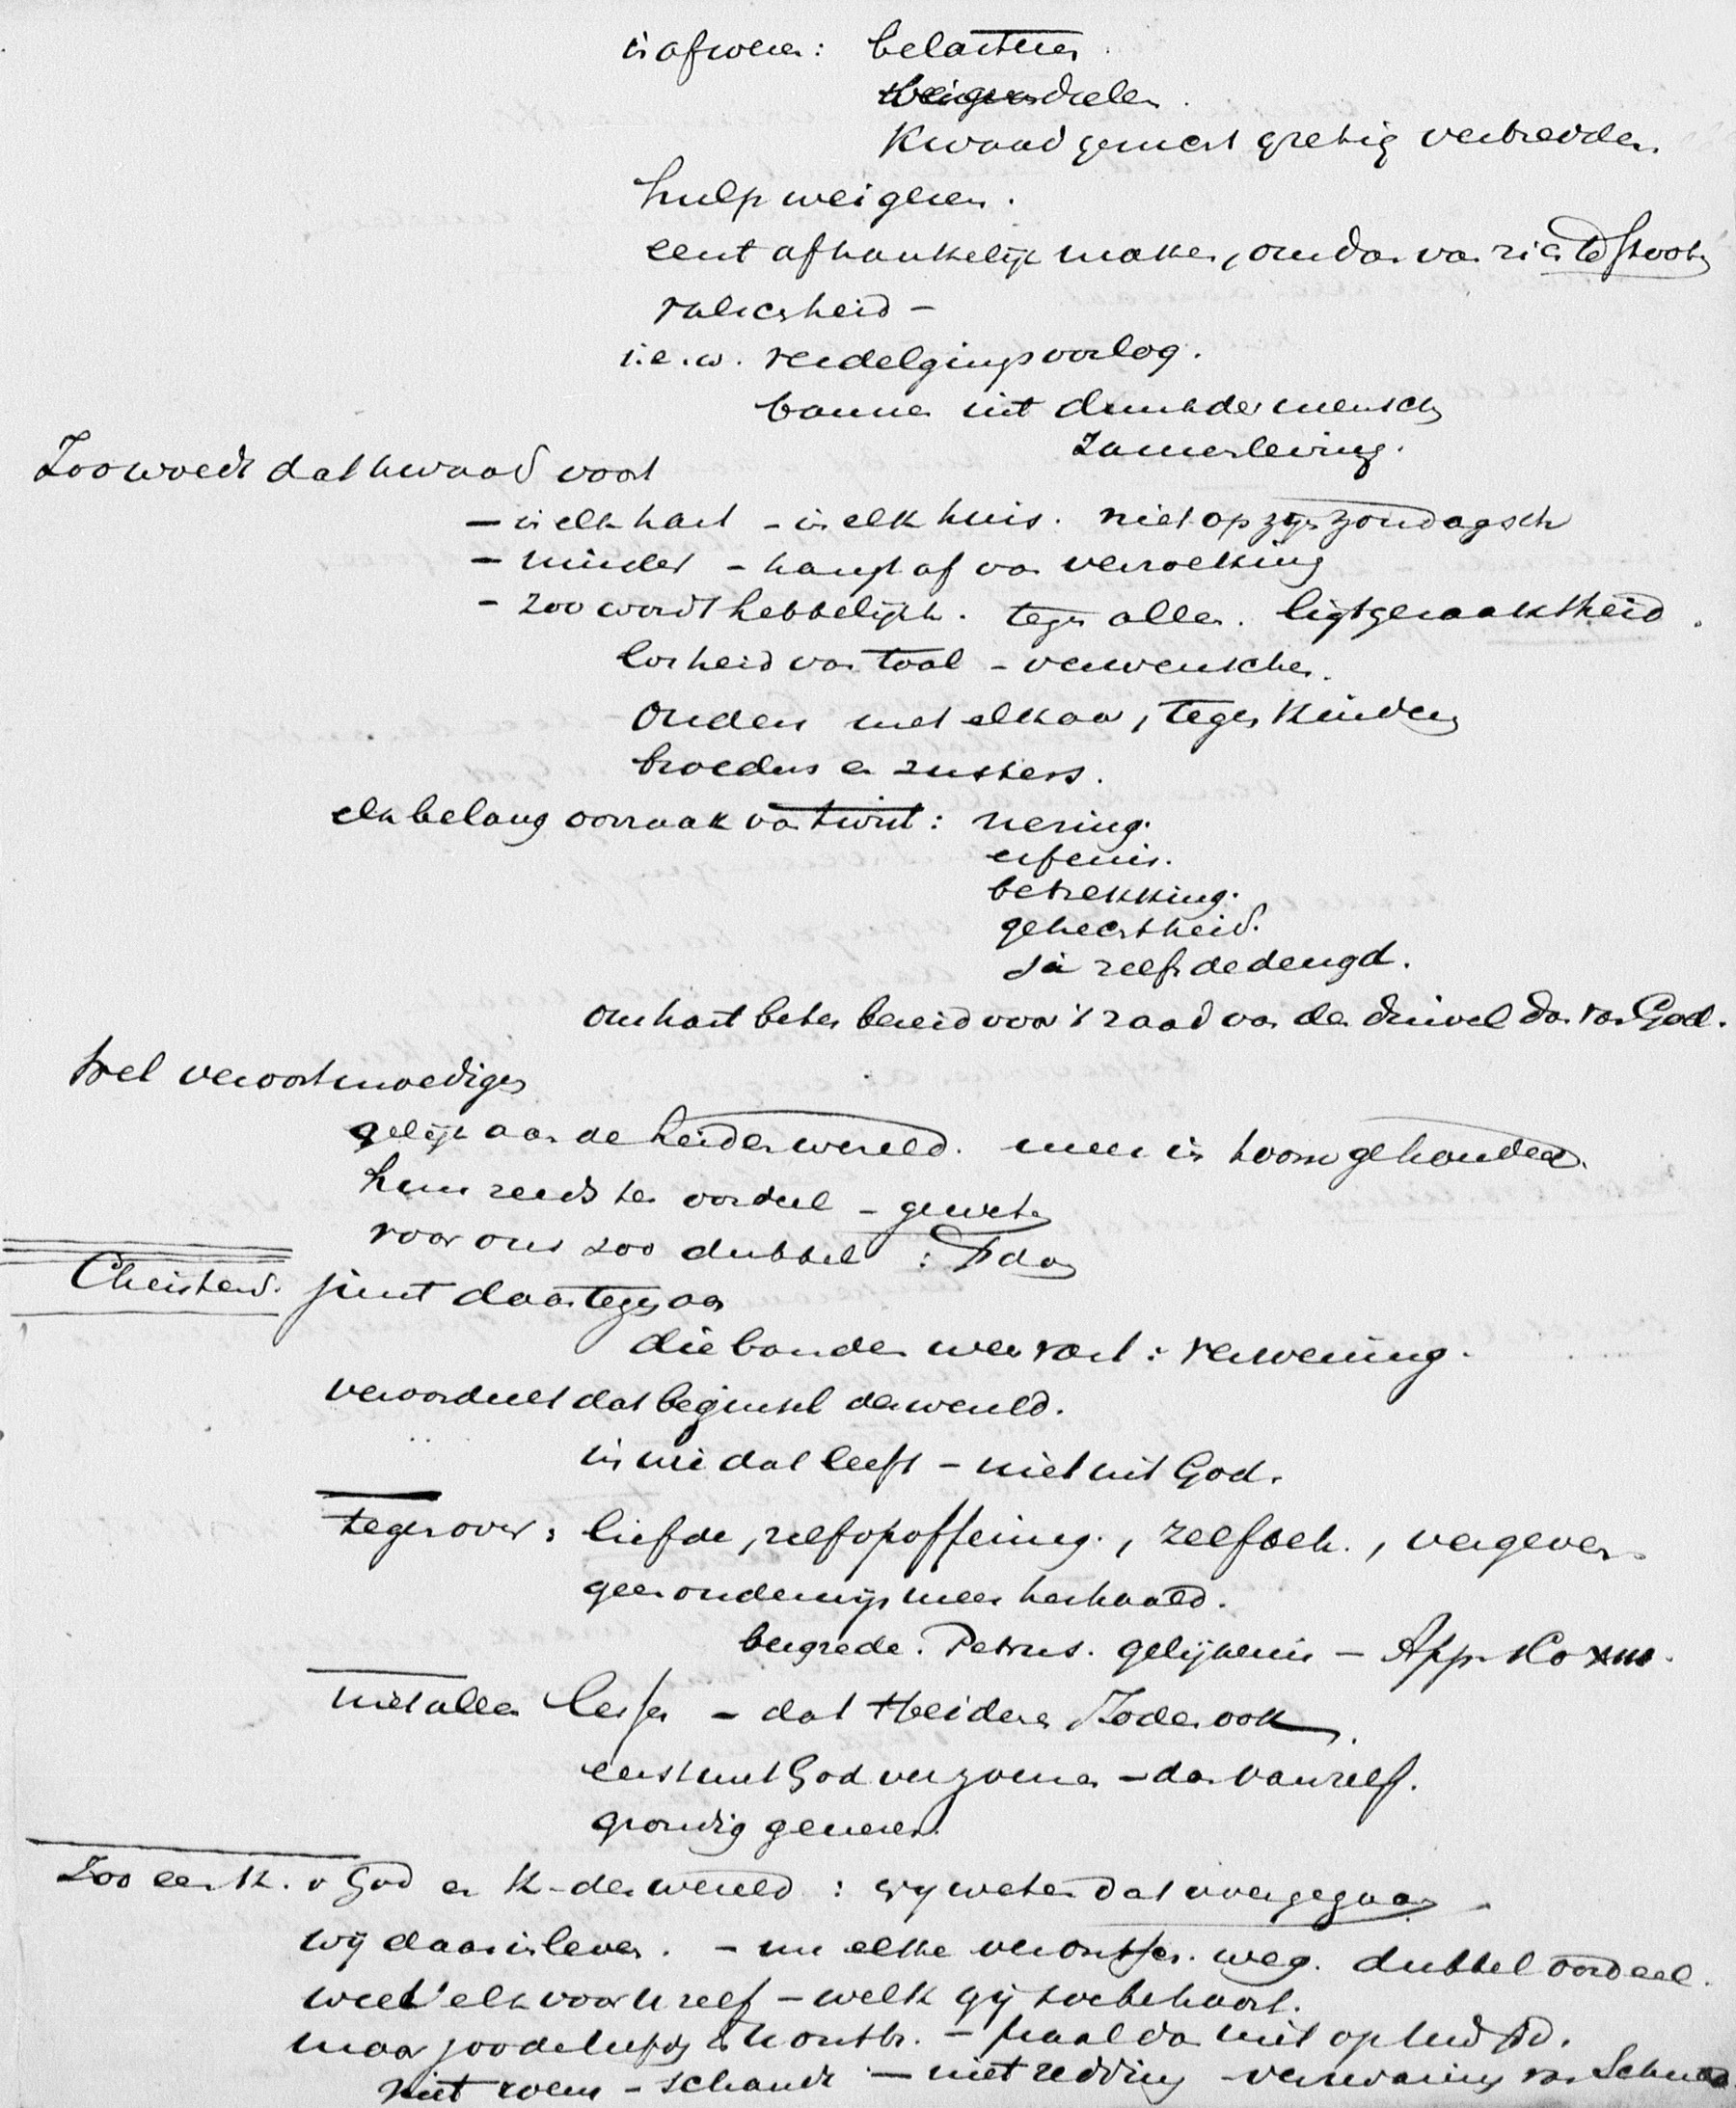 in afwezen: belasteren.
deelen.
Kwaad gerucht gretig verbreiden.
hulp weigeren.
eerst afhankelijk maken, om dan van zich te stooten
valschheid –
i.e.w. verdelgingsoorlog.
bannen uit den der menschen
zamenleving.
Zoo woedt dat kwaad voort
– in elk hart – in elk huis. niet op zijn zondagsch
– minder – hangt af van verzoeking
– zoo wordt hebbelijkh. tegen allen. ligtgeraaktheid.
losheid van taal – verwenschen.
ouders met elkaar, tegen kinderen
broeders en zusters.
elk belang oorzaak van twist: nering.
erfenis.
betrekking.
gehechtheid.
Ja zelfs de deugd.
Ons hart beter bereid voor 't zaad van den duivel dan van God.
Wel verootmoedigen
gelijk aan de heidenwereld. meer in toom gehouden.
hun reeds ten oordeel – geweten
voor ons zoo dubbel :
Christend. juist daartegen aan
die banden weer vast: verzoening.
veroordeelt dat beginsel der wereld.
in wie dat leeft – niet uit God.
tegenover: liefde, zelfopoffering., zelfbeh., vergeven.
geen onderwijs meer herhaald.
bergrede. Petrus. gelijkenis – App. 1 Co XIII.
niet alleen lessen – dat Heidenen Joden ook.
eerst met God verzoenen – dan van zelf.
grondig genezen.
Zoo een K. v God en K. der wereld: wij weten dat overgegaan.
wij daarin leven. – nu elke veronts. weg. dubbel oordeel.
weet' elk voor u zelf – welk gij toebehoort.
maar zoo de liefde u ontbr. – praal dan niet op
niet roem – schande – niet redding – verzwaring van Schuld